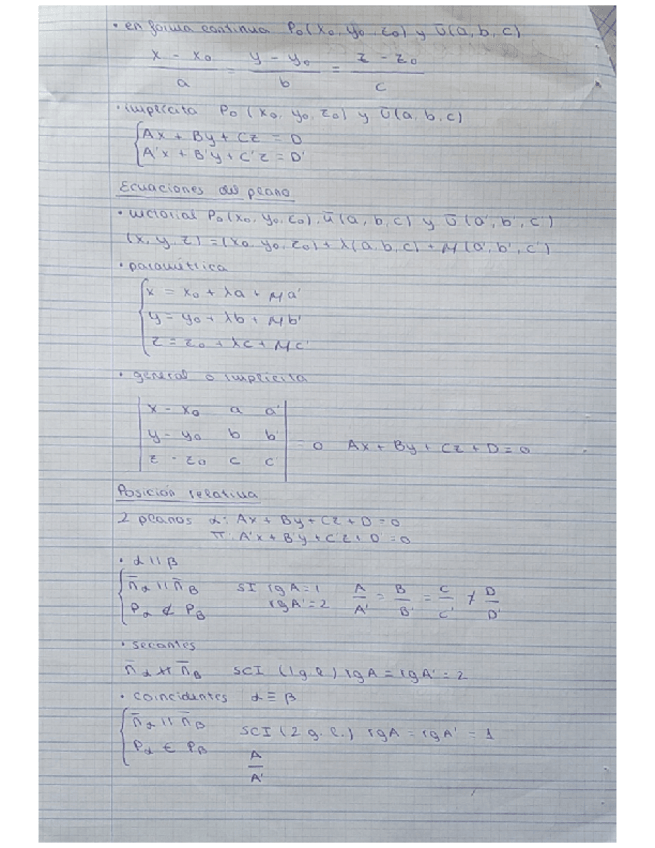 • en forma continua P₀(x₀, y₀, z₀) y ū(a, b, c)
x - x₀ / a = y - y₀ / b = z - z₀ / c
• implícita P₀(x₀, y₀, z₀) y ū(a, b, c)
Ax + By + Cz = D
A'x + B'y + C'z = D'
Ecuaciones del plano
• vectorial P₀(x₀, y₀, z₀), ū(a, b, c) y ū(a', b', c')
(x, y, z) = (x₀, y₀, z₀) + λ(a, b, c) + μ(a', b', c')
• paramétrica
x = x₀ + λa + μa'
y = y₀ + λb + μb'
z = z₀ + λc + μc'
• general o implícita
| x - x₀ a a' |
| y - y₀ b b' | = 0 Ax + By + Cz + D = 0
| z - z₀ c c' |
Posición relativa
2 planos α: Ax + By + Cz + D = 0
π: A'x + B'y + C'z + D' = 0
• α || β
n̄α || n̄β SI rgA = 1 A/A' = B/B' = C/C' ≠ D/D'
Pα ∉ Pβ rgA' = 2
• secantes
n̄α ∦ n̄β SCI (1g.l.) rgA = rgA' = 2
• coincidentes α ≡ β
n̄α || n̄β SCI (2 g.l.) rgA = rgA' = 1
Pα ∈ Pβ
A/A'